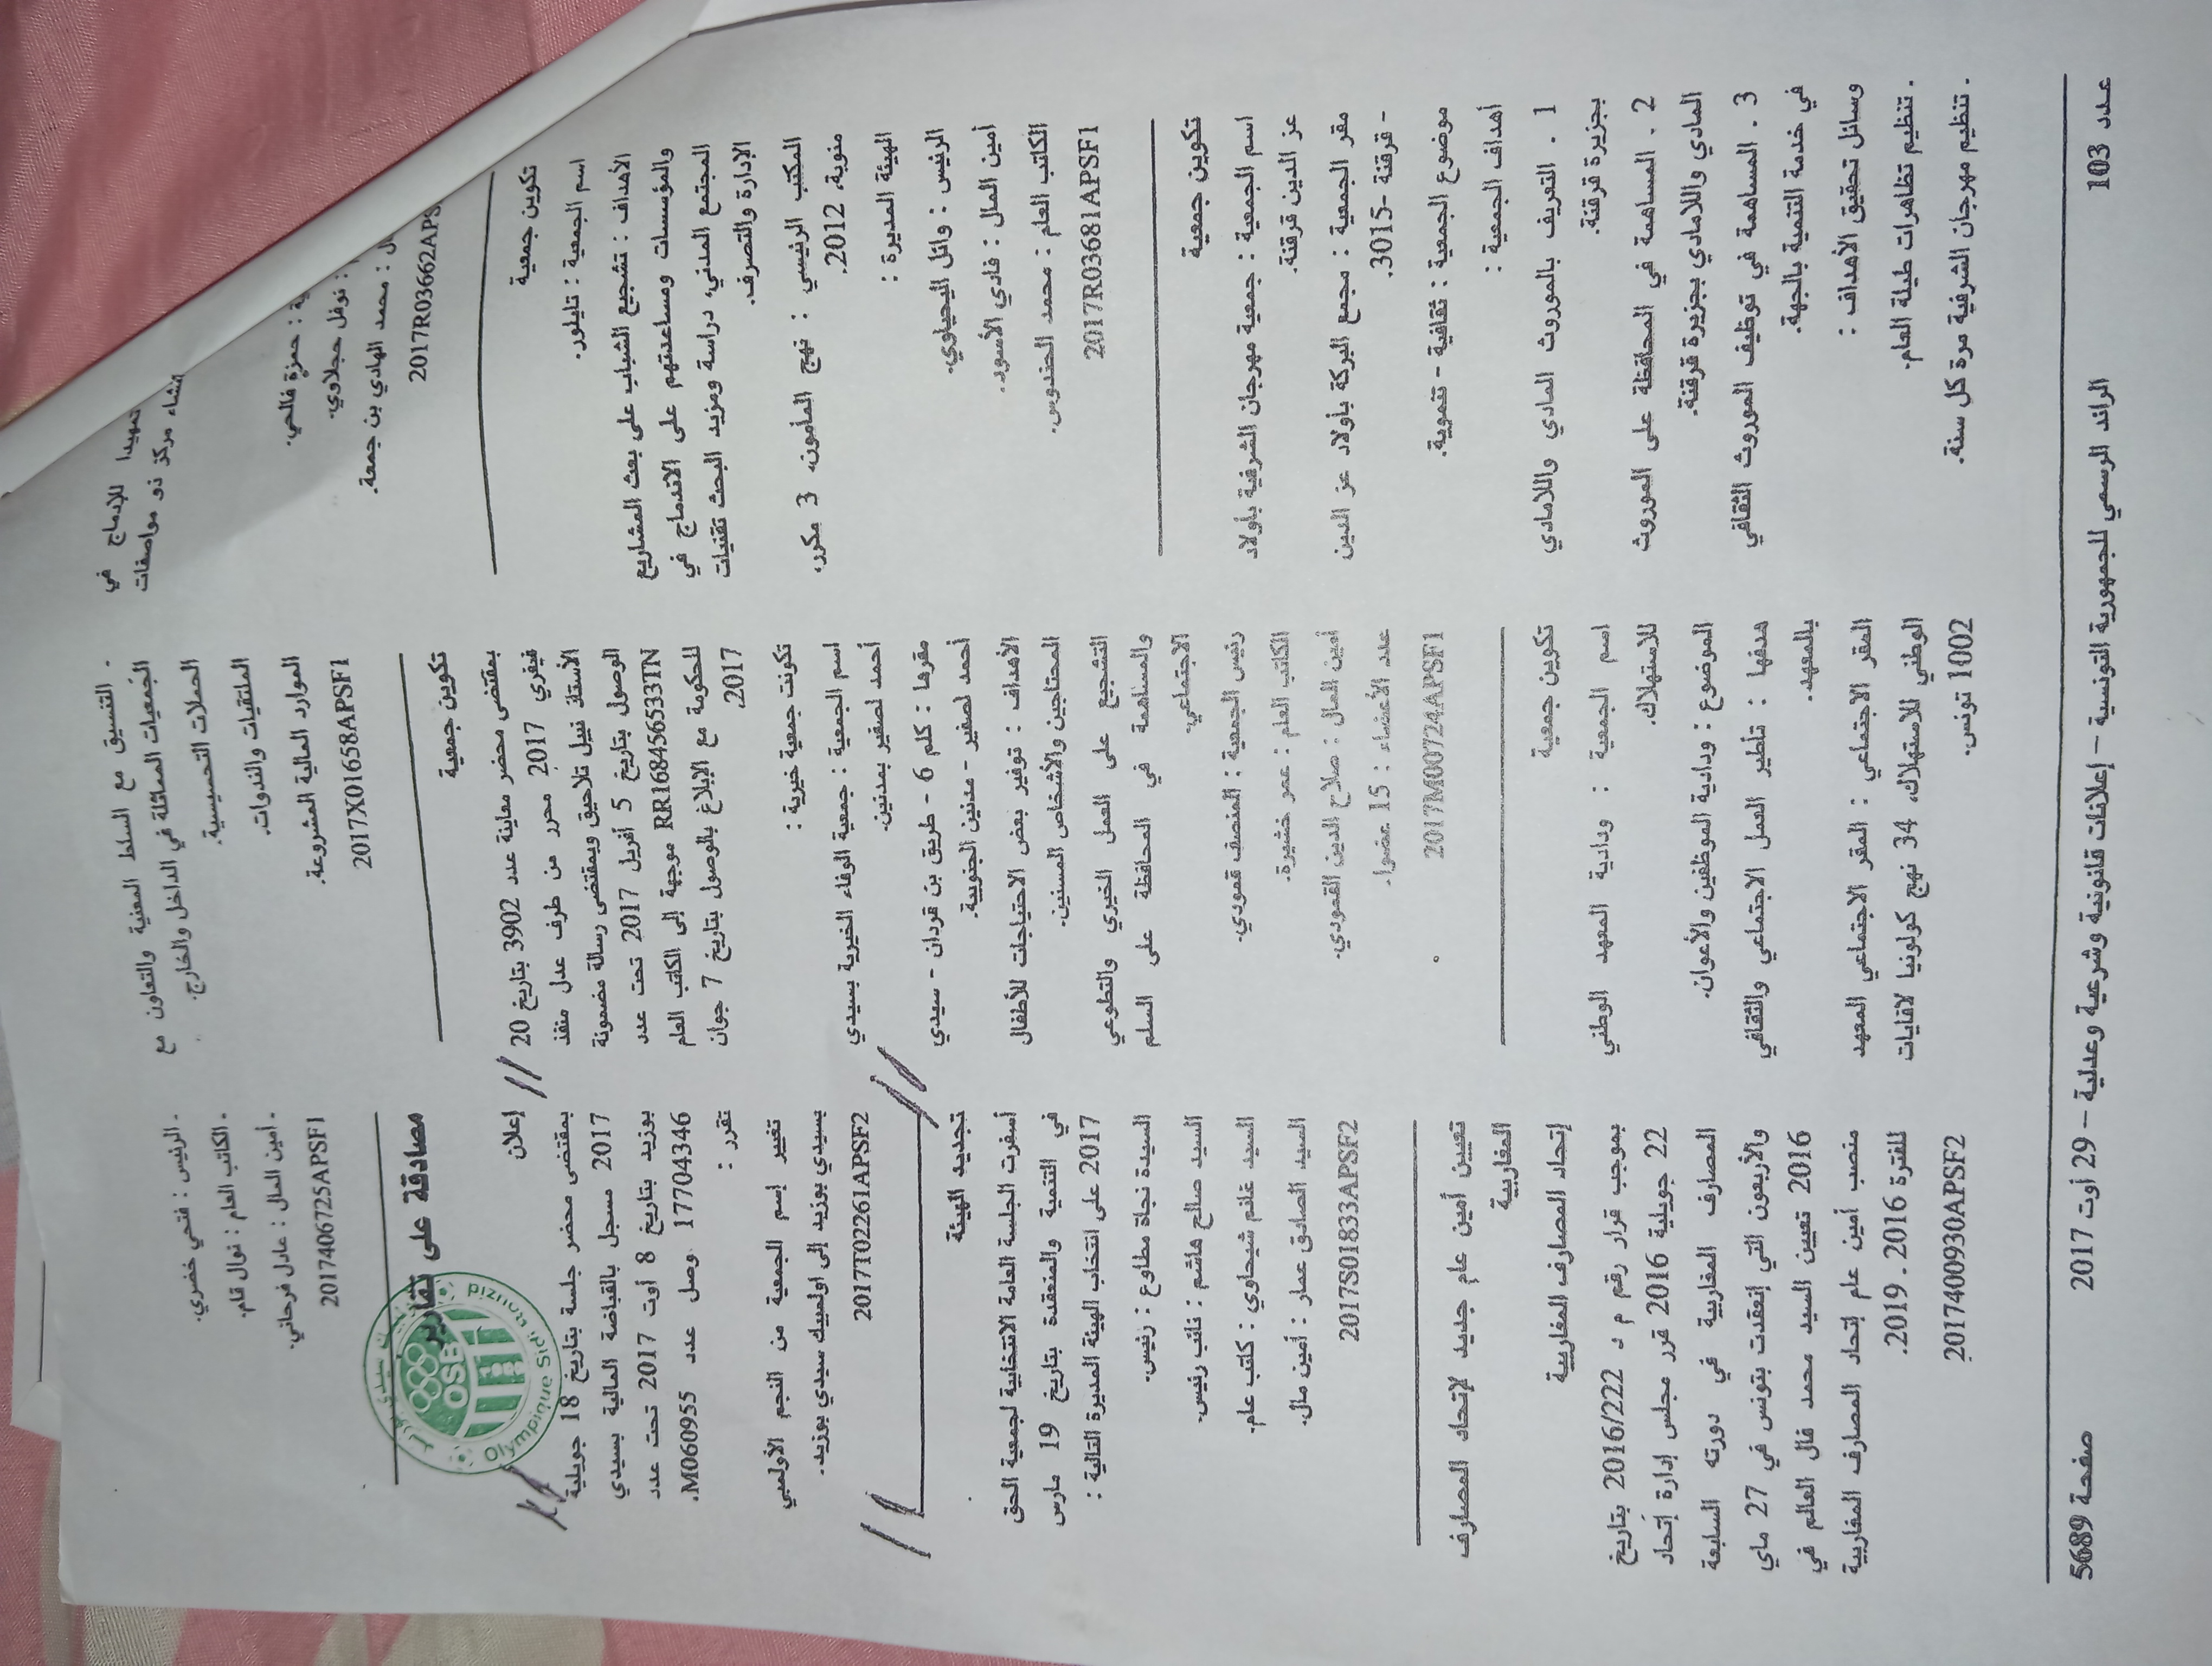 تمهيدا للإدماج في
إنشاء مركز ذو مواصفات
: حمزة فالحي.
: نوفل حجلاوي.
: محمد الهادي بن جمعة.
2017R03662APS
تكوين جمعية
اسم الجمعية : تايلور.
الأهداف : تشجيع الشباب على بعث المشاريع
والمؤسسات ومساعدتهم على الاندماج في
المجتمع المدني، دراسة ومزيد البحث تقنيات
الإدارة والتصرف.
المكتب الرئيسي : نهج المأمون، 3 مكرر،
منوبة، 2012.
الهيئة المديرة :
الرئيس : وائل اليحياوي.
أمين المال : فادي الأسود.
الكاتب العام : محمد الحندوس.
2017R03681APSF1
تكوين جمعية
اسم الجمعية : جمعية مهرجان الشرفية باولاد
عز الدين قرقنة.
مقر الجمعية : مجمع البركة بأولاد عز الدين
- قرقنة -3015.
موضوع الجمعية : ثقافية - تنموية.
أهداف الجمعية :
1 . التعريف بالموروث المادي واللامادي
بجزيرة قرقنة.
2 . المساهمة في المحافظة على الموروث
المادي واللامادي بجزيرة قرقنة.
3 . المساهمة في توظيف الموروث الثقافي
في خدمة التنمية بالجهة.
وسائل تحقيق الأهداف :
. تنظيم تظاهرات طيلة العام.
. تنظيم مهرجان الشرفية مرة كل سنة.
. التنسيق مع السلط المعنية والتعاون مع
الجمعيات المماثلة في الداخل والخارج.
الحملات التحسيسية.
الملتقيات والندوات.
الموارد المالية المشروعة.
2017X01658APSF1
تكوين جمعية
بمقتضى محضر معاينة عدد 3902 بتاريخ 20
فيفري 2017 محرر من طرف عدل منفذ
الأستاذ نبيل تلاحيق وبمقتضى رسالة مضمونة
الوصول بتاريخ 5 أفريل 2017 تحت عدد
RR168456533TN موجهة إلى الكاتب العام
للحكومة مع الإبلاغ بالوصول بتاريخ 7 جوان
2017
تكونت جمعية خيرية :
اسم الجمعية : جمعية الوفاء الخيرية بسيدي
أحمد لصفير بمدنين.
مقرها : كلم 6 - طريق بن قردان - سيدي
أحمد لصفير - مدنين الجنوبية.
الأهداف : توفير بعض الاحتياجات للأطفال
المحتاجين والأشخاص المسنين.
التشجيع على العمل الخيري والتطوعي
والمساهمة في المحافظة على السلم
الاجتماعي.
رئيس الجمعية : المنصف قمودي.
الكاتب العام : عمر خشيرة.
أمين المال : صلاح الدين القمودي.
عدد الأعضاء : 15 عضوا.
2017M00724APSF1
تكوين جمعية
اسم الجمعية : ودادية المعهد الوطني
للاستهلاك.
الموضوع : ودادية الموظفين والأعوان.
هدفها : تأطير العمل الاجتماعي والثقافي
بالمعهد.
المقر الاجتماعي : المقر الاجتماعي المعهد
الوطني للاستهلاك، 34 نهج كولونيا لافايات
1002 تونس.
. الرئيس : فتحي خضري.
. الكاتب العام : نوال قام.
. أمين المال : عادل فرحاني.
2017406725APSF1
مصادقة على تقارير
OSB
Olympique Sidi Bouzid
إعلان
بمقتضى محضر جلسة بتاريخ 18 جويلية
2017 مسجل بالقباضة المالية بسيدي
بوزيد بتاريخ 8 أوت 2017 تحت عدد
17704346 وصل عدد M060955.
تقرر :
تغيير إسم الجمعية من النجم الأولمبي
بسيدي بوزيد إلى اولمبيك سيدي بوزيد.
2017T02261APSF2
تجديد الهيئة
أسفرت الجلسة العامة الانتخابية لجمعية الحق
في التنمية والمنعقدة بتاريخ 19 مارس
2017 على انتخاب الهيئة المديرة التالية :
السيدة نجاة مطاوع : رئيس.
السيد صالح هاشم : نائب رئيس.
السيد غانم شيحاوي : كاتب عام.
السيد الصادق عمار : أمين مال.
2017S01833APSF2
تعيين أمين عام جديد لإتحاد المصارف
المغاربية
إتحاد المصارف المغاربية
بموجب قرار رقم م د 2016/222 بتاريخ
22 جويلية 2016 قرر مجلس إدارة إتحاد
المصارف المغاربية في دورته السابعة
والأربعون التي إنعقدت بتونس في 27 ماي
2016 تعيين السيد محمد فال العالم في
منصب أمين عام إتحاد المصارف المغاربية
للفترة 2016 . 2019.
2017400930APSF2
عدد 103 الرائد الرسمي للجمهورية التونسية – إعلانات قانونية وشرعية وعدلية – 29 أوت 2017 صفحة 5689